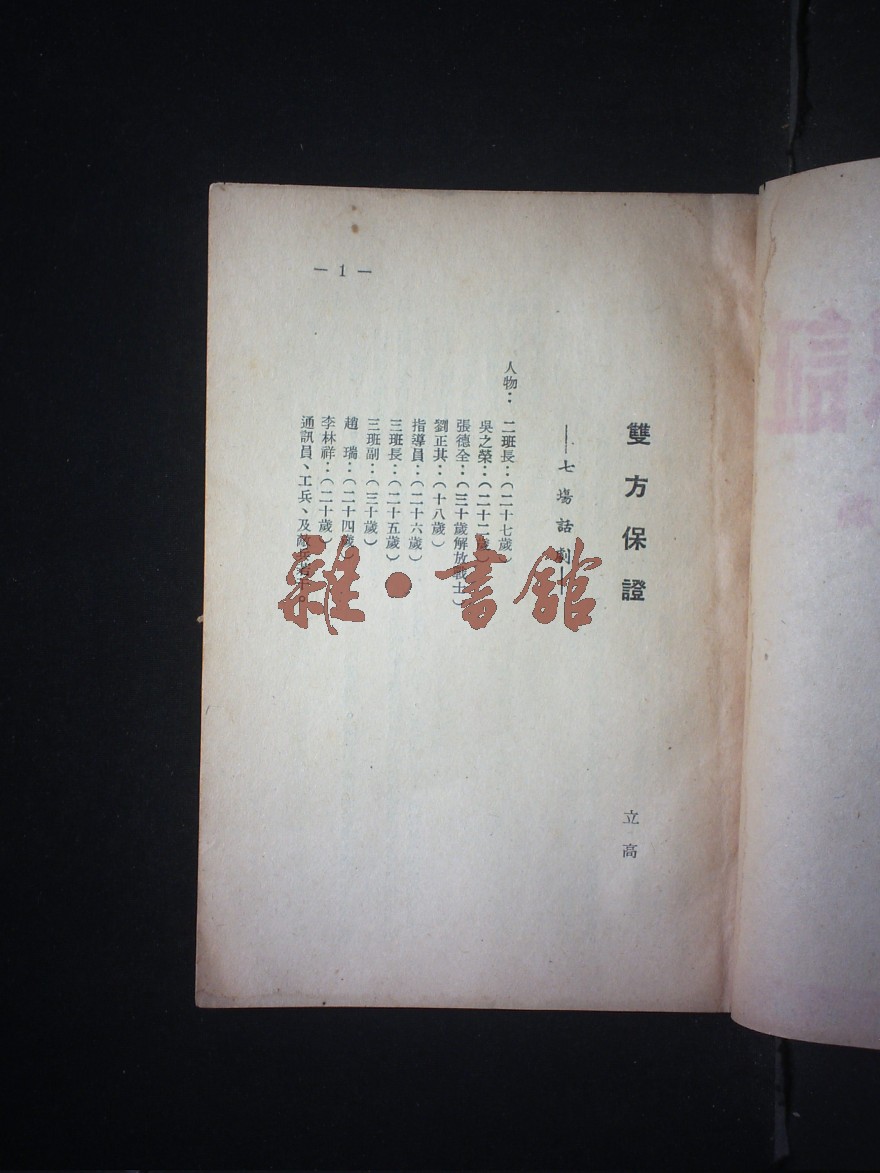 雙方保證
立高
——七場話劇——
人物：二班長：（二十七歲）
吳之榮：（二十二歲）
張德全：（三十歲解放戰士）
劉正其：（十八歲）
指導員：（二十六歲）
三班長：（二十五歲）
三班副：（三十歲）
趙　瑞：（二十四歲）
李林祥：（二十歲）
通訊員、工兵、及敵
— 1 —
雜·書館
証